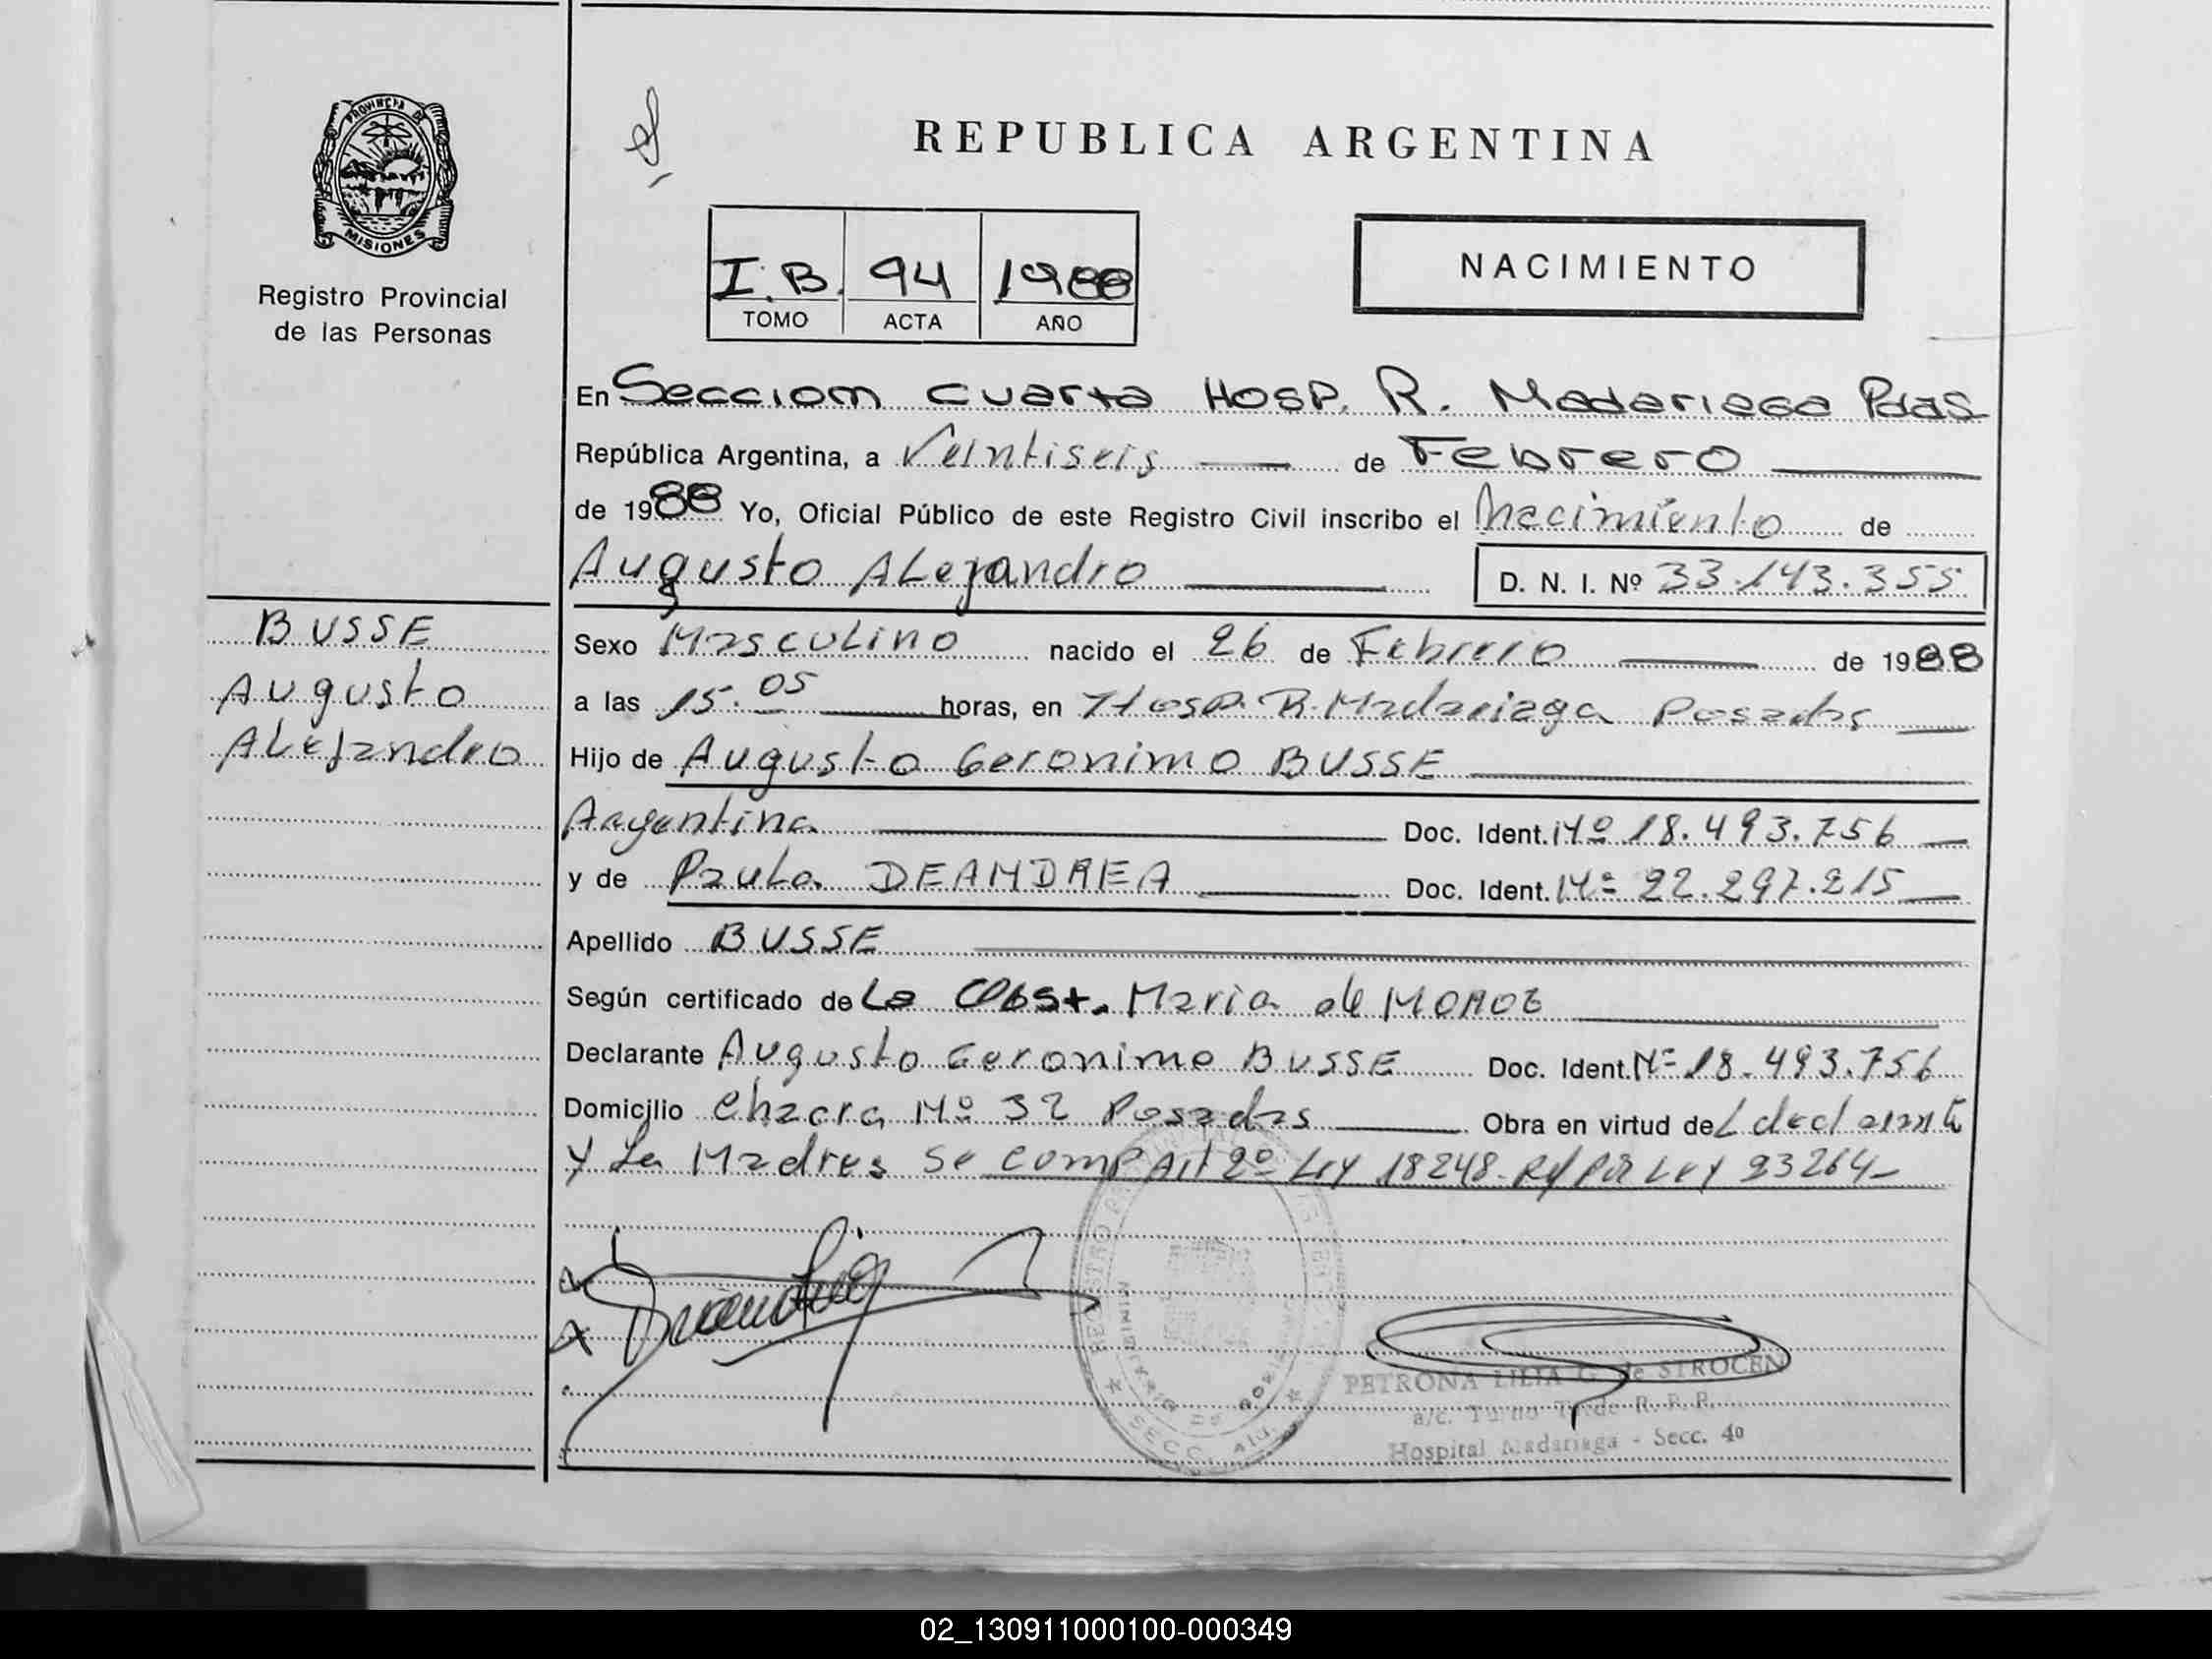 PROVINCIA DE
MISIONES
Registro Provincial
de las Personas
REPUBLICA ARGENTINA
I.B. 94 1988
TOMO ACTA AÑO
NACIMIENTO
En Seccion Cuarta Hosp. R. Madariaga Pdas
República Argentina, a Veintiseis de Febrero
de 1988 Yo, Oficial Público de este Registro Civil inscribo el Nacimiento de
Augusto Alejandro D. N. I. Nº 33.143.355
BUSSE
Augusto
Alejandro
Sexo Masculino nacido el 26 de Febrero de 1988
a las 15.05 horas, en Hosp. R. Madariaga Posadas
Hijo de Augusto Geronimo BUSSE
Argentina Doc. Ident. Nº 18.493.756
y de Paula DEANDREA Doc. Ident. Nº 22.297.215
Apellido BUSSE
Según certificado de La Obst. Maria de
Declarante Augusto Geronimo BUSSE Doc. Ident. Nº 18.493.756
Domicilio Chacra Nº 32 Posadas Obra en virtud de L declarante
y La Madres se comp Art 2º Ley 18248 Ref por Ley 23264
PETRONA LILIA G. de STROCEN
a/c. Turno Tarde R. P. P.
Hospital Madariaga - Secc. 4º
02_130911000100-000349